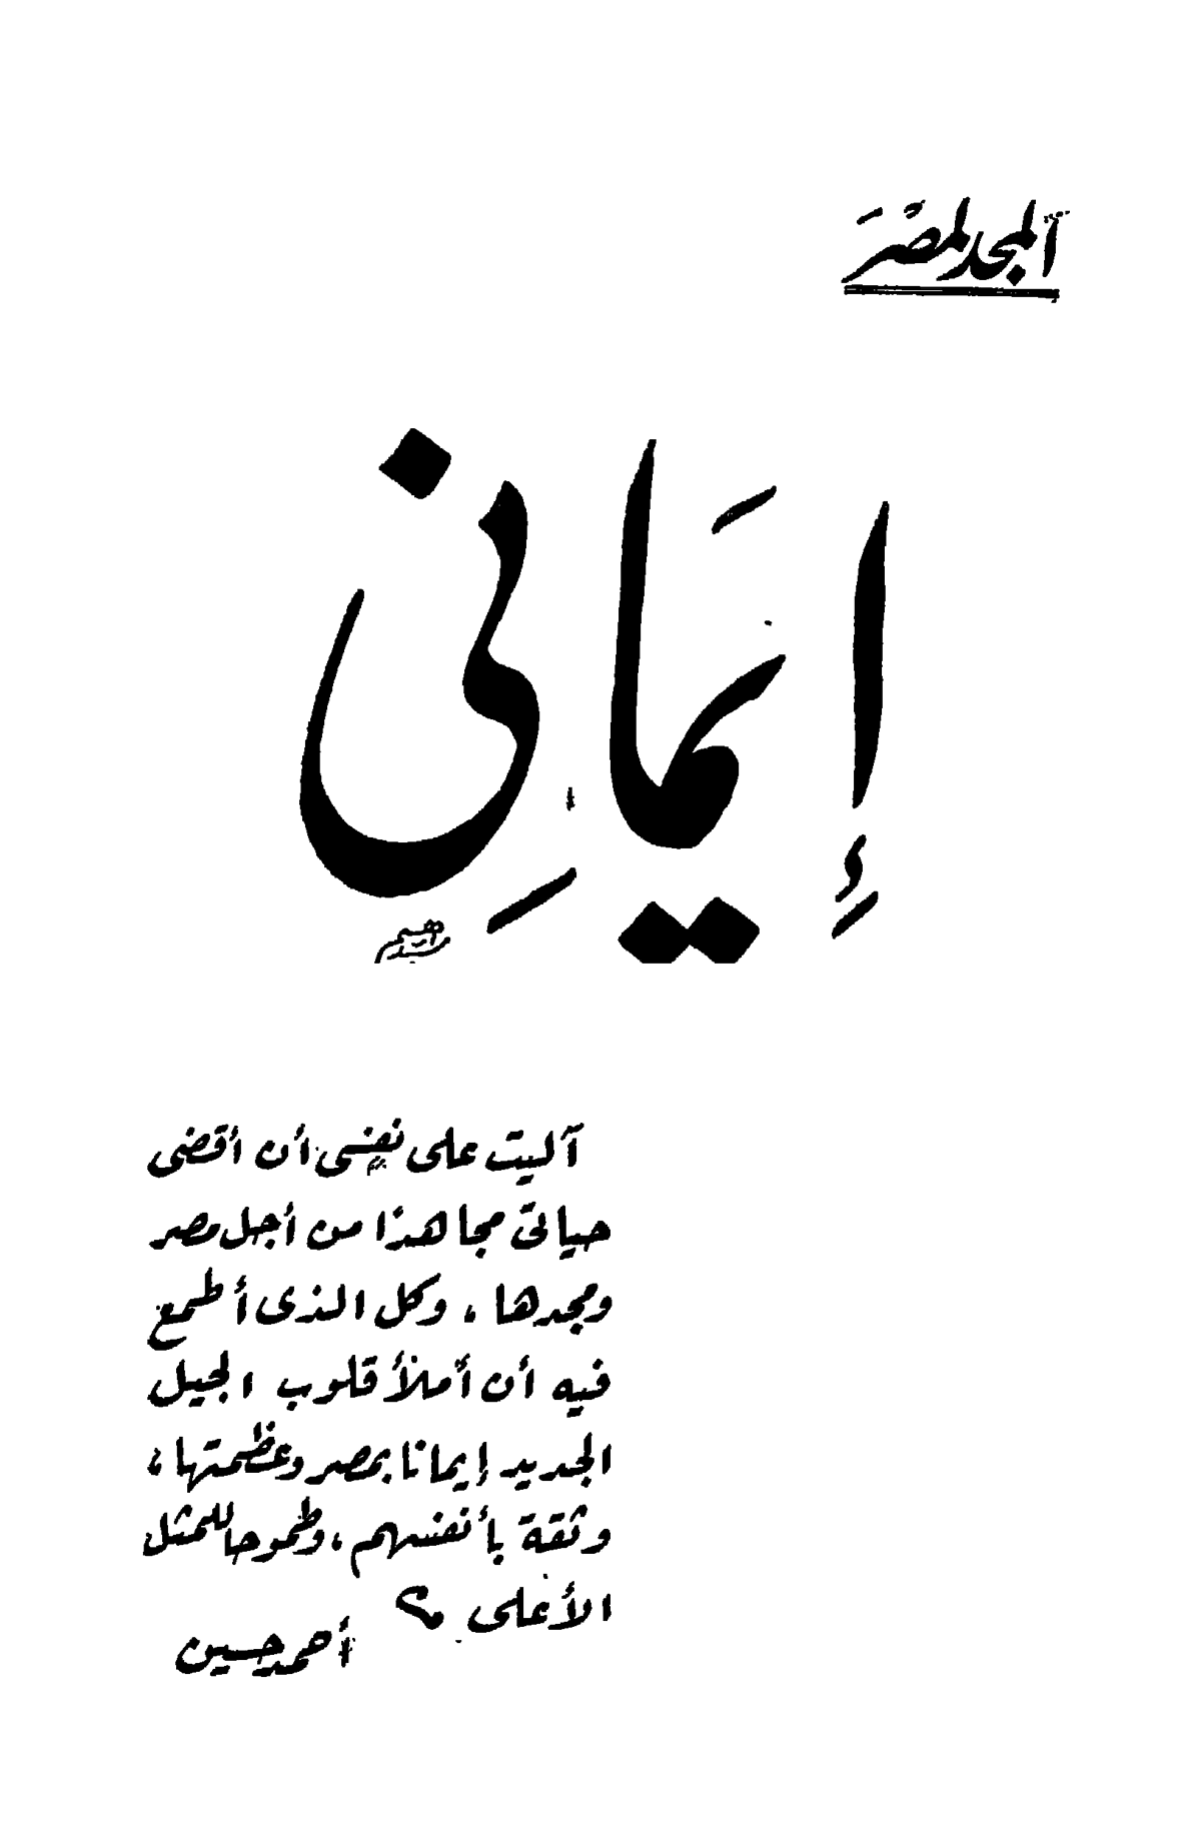 المجد لمصْرَ
إِيمَانِى
آليت على نفسى أن أقضى
حياتى مجاهدًا من أجل مصر
ومجدها ، وكل الذى أطمع
فيه أن أملأ قلوب الجيل
الجديد إيمانا بمصر وعظمتها ،
وثقة بأنفسهم ، وطموحا للمثل
الأعلى
أحمد حسين